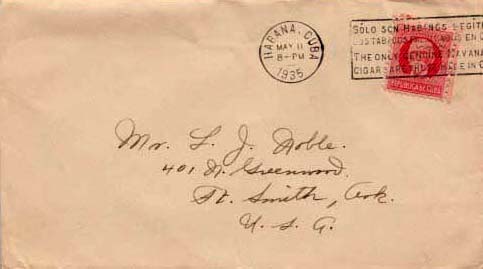 HABANA, CUBA
MAY 11
8-PM
1935
SOLO SON HABANOS LEGITI
LOS TABACOS EN C
THE ONLY GENUINE HAVANA
CIGARS ARE THOSE MADE IN C
REPUBLICA DE CUBA
Mr. L. J. Noble.
401 N. Greenwood.
Ft. Smith, Ark.
U. S. A.